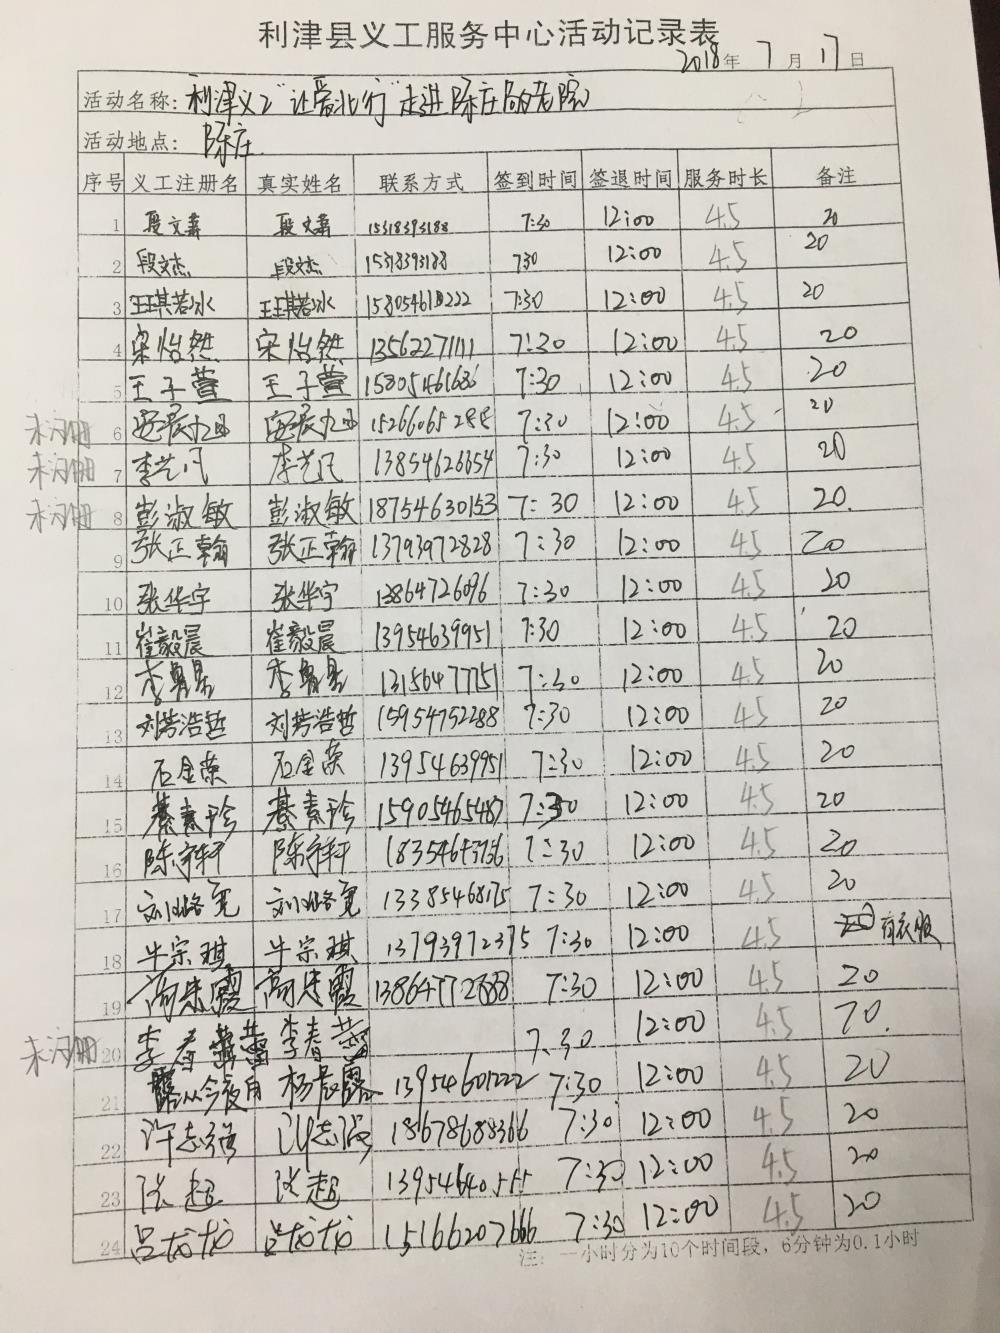 利津县义工服务中心活动记录表
2018年 7月 17日
活动名称: 利津义工"让爱北行"走进陈庄敬老院
活动地点: 陈庄
序号 义工注册名 真实姓名 联系方式 签到时间 签退时间 服务时长 备注
1 段文 段文 15318393188 7:30 12:00 4.5 20
2 段文杰 段文杰 15318393188 730 12:00 4.5 20
3 王琪若冰 王琪若冰 7:30 12:00 4.5 20
4 宋怡然 宋怡然 13562271111 7:30 12:00 4.5 20
5 王子萱 王子萱 15805465686 7:30 12:00 4.5 20
未注册 6 7:30 12:00 4.5 20
未注册 7 李艺凡 李艺凡 13854626654 7:30 12:00 4.5 20
未注册 8 彭淑敏 彭淑敏 18754630153 7:30 12:00 4.5 20.
9 张正翰 张正翰 13793972828 7:30 12:00 4.5 20
10 张华宇 张华宇 13864726096 7:30 12:00 4.5 20
11 崔毅晨 崔毅晨 13954639951 7:30 12:00 4.5 20
12 李 李 13156477751 7:30 12:00 4.5 20
13 刘芳浩哲 刘芳浩哲 15954752288 7:30 12:00 4.5 20
14 石金荣 石金荣 13954639951 7:30 12:00 4.5 20
15 綦素珍 綦素珍 15905465487 7:30 12:00 4.5 20
16 陈宇轩 陈宇轩 7:30 12:00 4.5 20
17 刘 刘 13385468175 7:30 12:00 4.5 20
18 牛宗琪 牛宗琪 13793972375 7:30 12:00 4.5 有衣服
19 高朱霞 高朱霞 7:30 12:00 4.5 20
未注册 20 李春蕾 李春蕾 7.30 12:00 4.5 20.
21 露从今夜白 杨露 13954601222 7:30 12:00 4.5 20
22 许志强 许志强 18678688366 7:30 12:00 4.5 20
23 张超 张超 13954640555 7:30 12:00 4.5 20
24 吕龙龙 吕龙龙 15166207666 7:30 12:00 4.5 20
注: 一小时分为10个时间段，6分钟为0.1小时